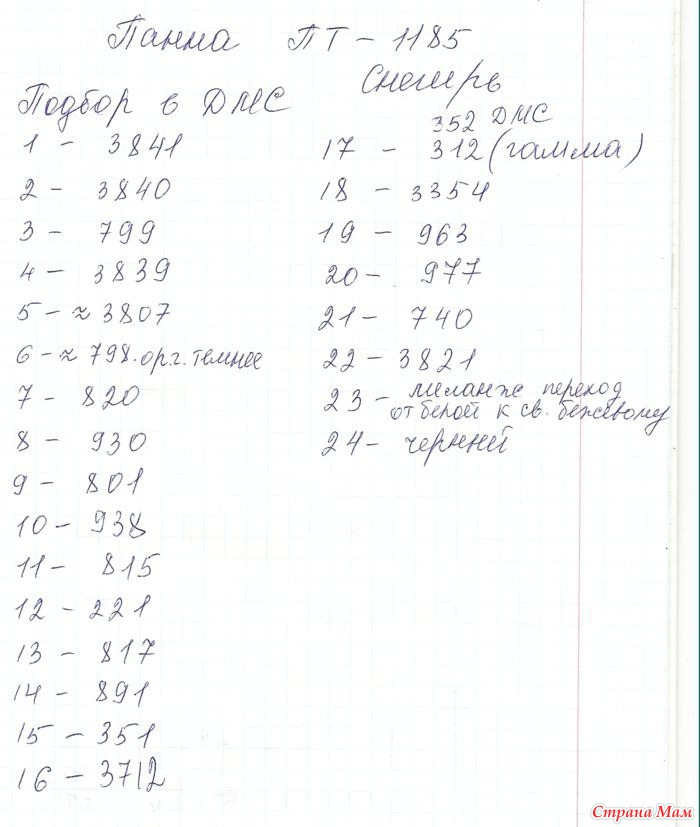 Панна ПТ - 1185
Снегирь
Подбор в ДМС
1 - 3841
2 - 3840
3 - 799
4 - 3839
5 - ≈ 3807
6 - ≈ 798. орг. темнее
7 - 820
8 - 930
9 - 801
10 - 938
11 - 815
12 - 221
13 - 817
14 - 891
15 - 351
16 - 3712
352 ДМС
17 - 312 (гамма)
18 - 3354
19 - 963
20 - 977
21 - 740
22 - 3821
23 - меланж переход
от белой к св. бежевому
24 - черный
Страна Мам